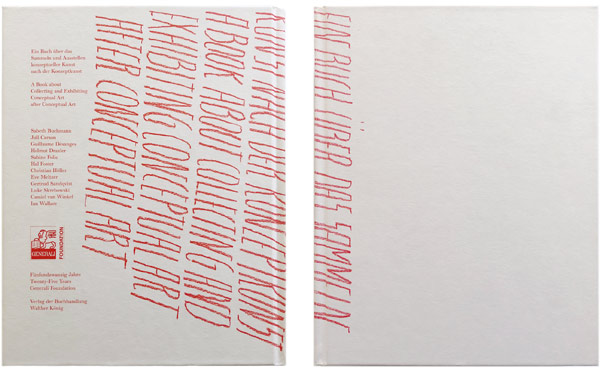 Ein Buch über das
Sammeln und Ausstellen
konzeptueller Kunst
nach der Konzeptkunst
A Book about
Collecting and Exhibiting
Conceptual Art
after Conceptual Art
Sabeth Buchmann
Juli Carson
Guillaume Désanges
Helmut Draxler
Sabine Folie
Hal Foster
Christian Höller
Eve Meltzer
Gertrud Sandqvist
Luke Skrebowski
Camiel van Winkel
Ian Wallace
GENERALI
FOUNDATION
Fünfundzwanzig Jahre
Twenty-Five Years
Generali Foundation
Verlag der Buchhandlung
Walther König
KUNST NACH DER KONZEPTKUNST
A BOOK ABOUT COLLECTING AND
EXHIBITING CONCEPTUAL ART
AFTER CONCEPTUAL ART
EIN BUCH ÜBER DAS SAMMELN